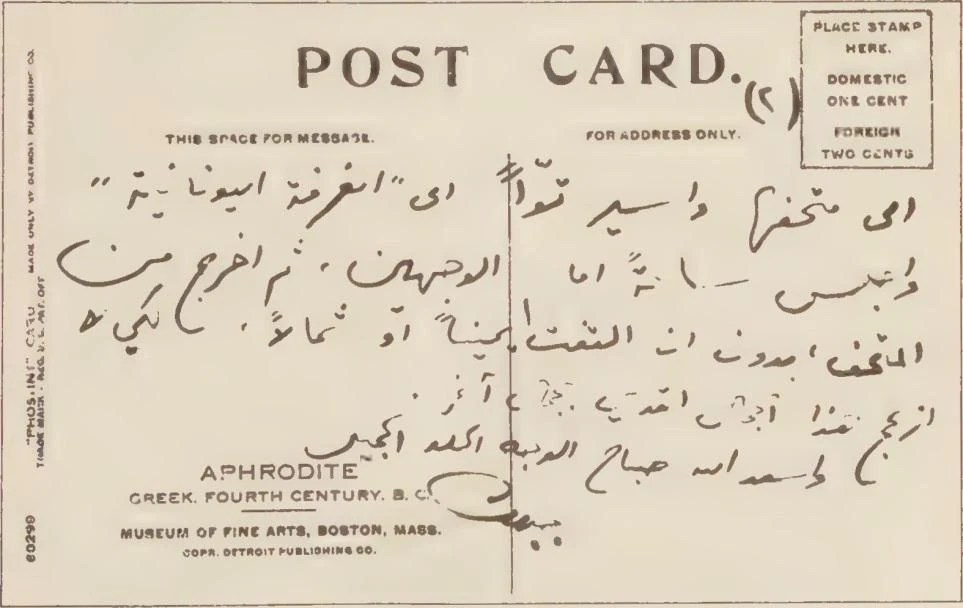 POST CARD.
(٢)
PLACE STAMP
HERE.
DOMESTIC
ONE CENT
FOREIGN
TWO CENTS
THIS SPACE FOR MESSAGE.
FOR ADDRESS ONLY.
الى متحفها واسير توّاً الى "الغرفة اليونانية"
واجلس ساعةً امام الوجهين، ثم اخرج من
المتحف بدون ان التفت يميناً او شمالاً. لكي لا
ازعج هذا الجمال القدسي بجمال آخر.
واسعد الله صباح الوجه الحلو الجميل
APHRODITE
GREEK. FOURTH CENTURY. B. C.
MUSEUM OF FINE ARTS, BOSTON, MASS.
COPR. DETROIT PUBLISHING CO.
"PHOSTINT" CARD MADE ONLY BY DETROIT PUBLISHING CO.
TRADE MARK - REG. U. S. PAT. OFF.
60299